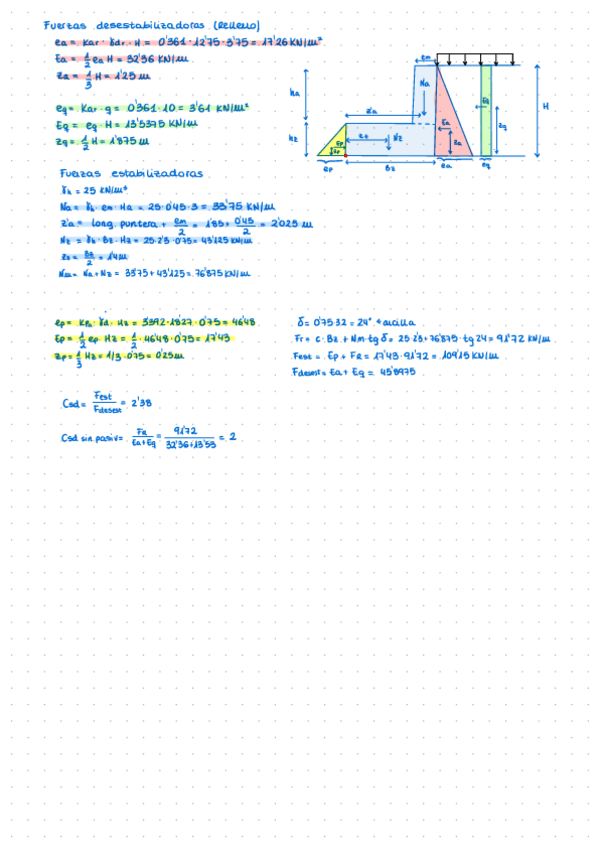 Fuerzas desestabilizadoras (Relleno)
ea = Kar · γdr · H = 0'361 · 12'75 · 3'75 = 17'26 KN/m²
Ea = 1/2 ea H = 32'36 KN/m
Za = 1/3 H = 1'25 m
eq = Kar · q = 0'361 · 10 = 3'61 KN/m²
Eq = eq H = 13'5375 KN/m
Zq = 1/2 H = 1'875 m
em
ha
Na
Z'a
Eq
H
hz
Ep
Zp
Zz
Nz
Ea
Za
Zq
ep
Bz
ea
eq
Fuerzas estabilizadoras
γh = 25 KN/m³
Na = γh · em · Ha = 25 · 0'45 · 3 = 33'75 KN/m
Z'a = long. puntera + em/2 = 1'85 + 0'45/2 = 2'025 m
Nz = γh · Bz · Hz = 25 · 2'3 · 0'75 = 43'125 KN/m
Zz = Bz/2 = 1'4 m
Nm = Na + Nz = 33'75 + 43'125 = 76'875 KN/m
ep = Kp · γd · Hz = 3'392 · 18'27 · 0'75 = 46'48
Ep = 1/2 ep Hz = 1/2 · 46'48 · 0'75 = 17'43
Zp = 1/3 Hz = 1/3 · 0'75 = 0'25 m
δ = 0'75 · 32 = 24° arcilla
Fr = c · Bz + Nm · tg δ = 25 · 2'3 + 76'875 · tg 24 = 91'72 KN/m
Fest = Ep + FR = 17'43 · 91'72 = 109'15 KN/m
Fdesest = Ea + Eq = 45'8975
Csd = Fest/Fdesest = 2'38
Csd sin pasiv = FR/(Ea+Eq) = 91'72/(32'36+13'53) = 2